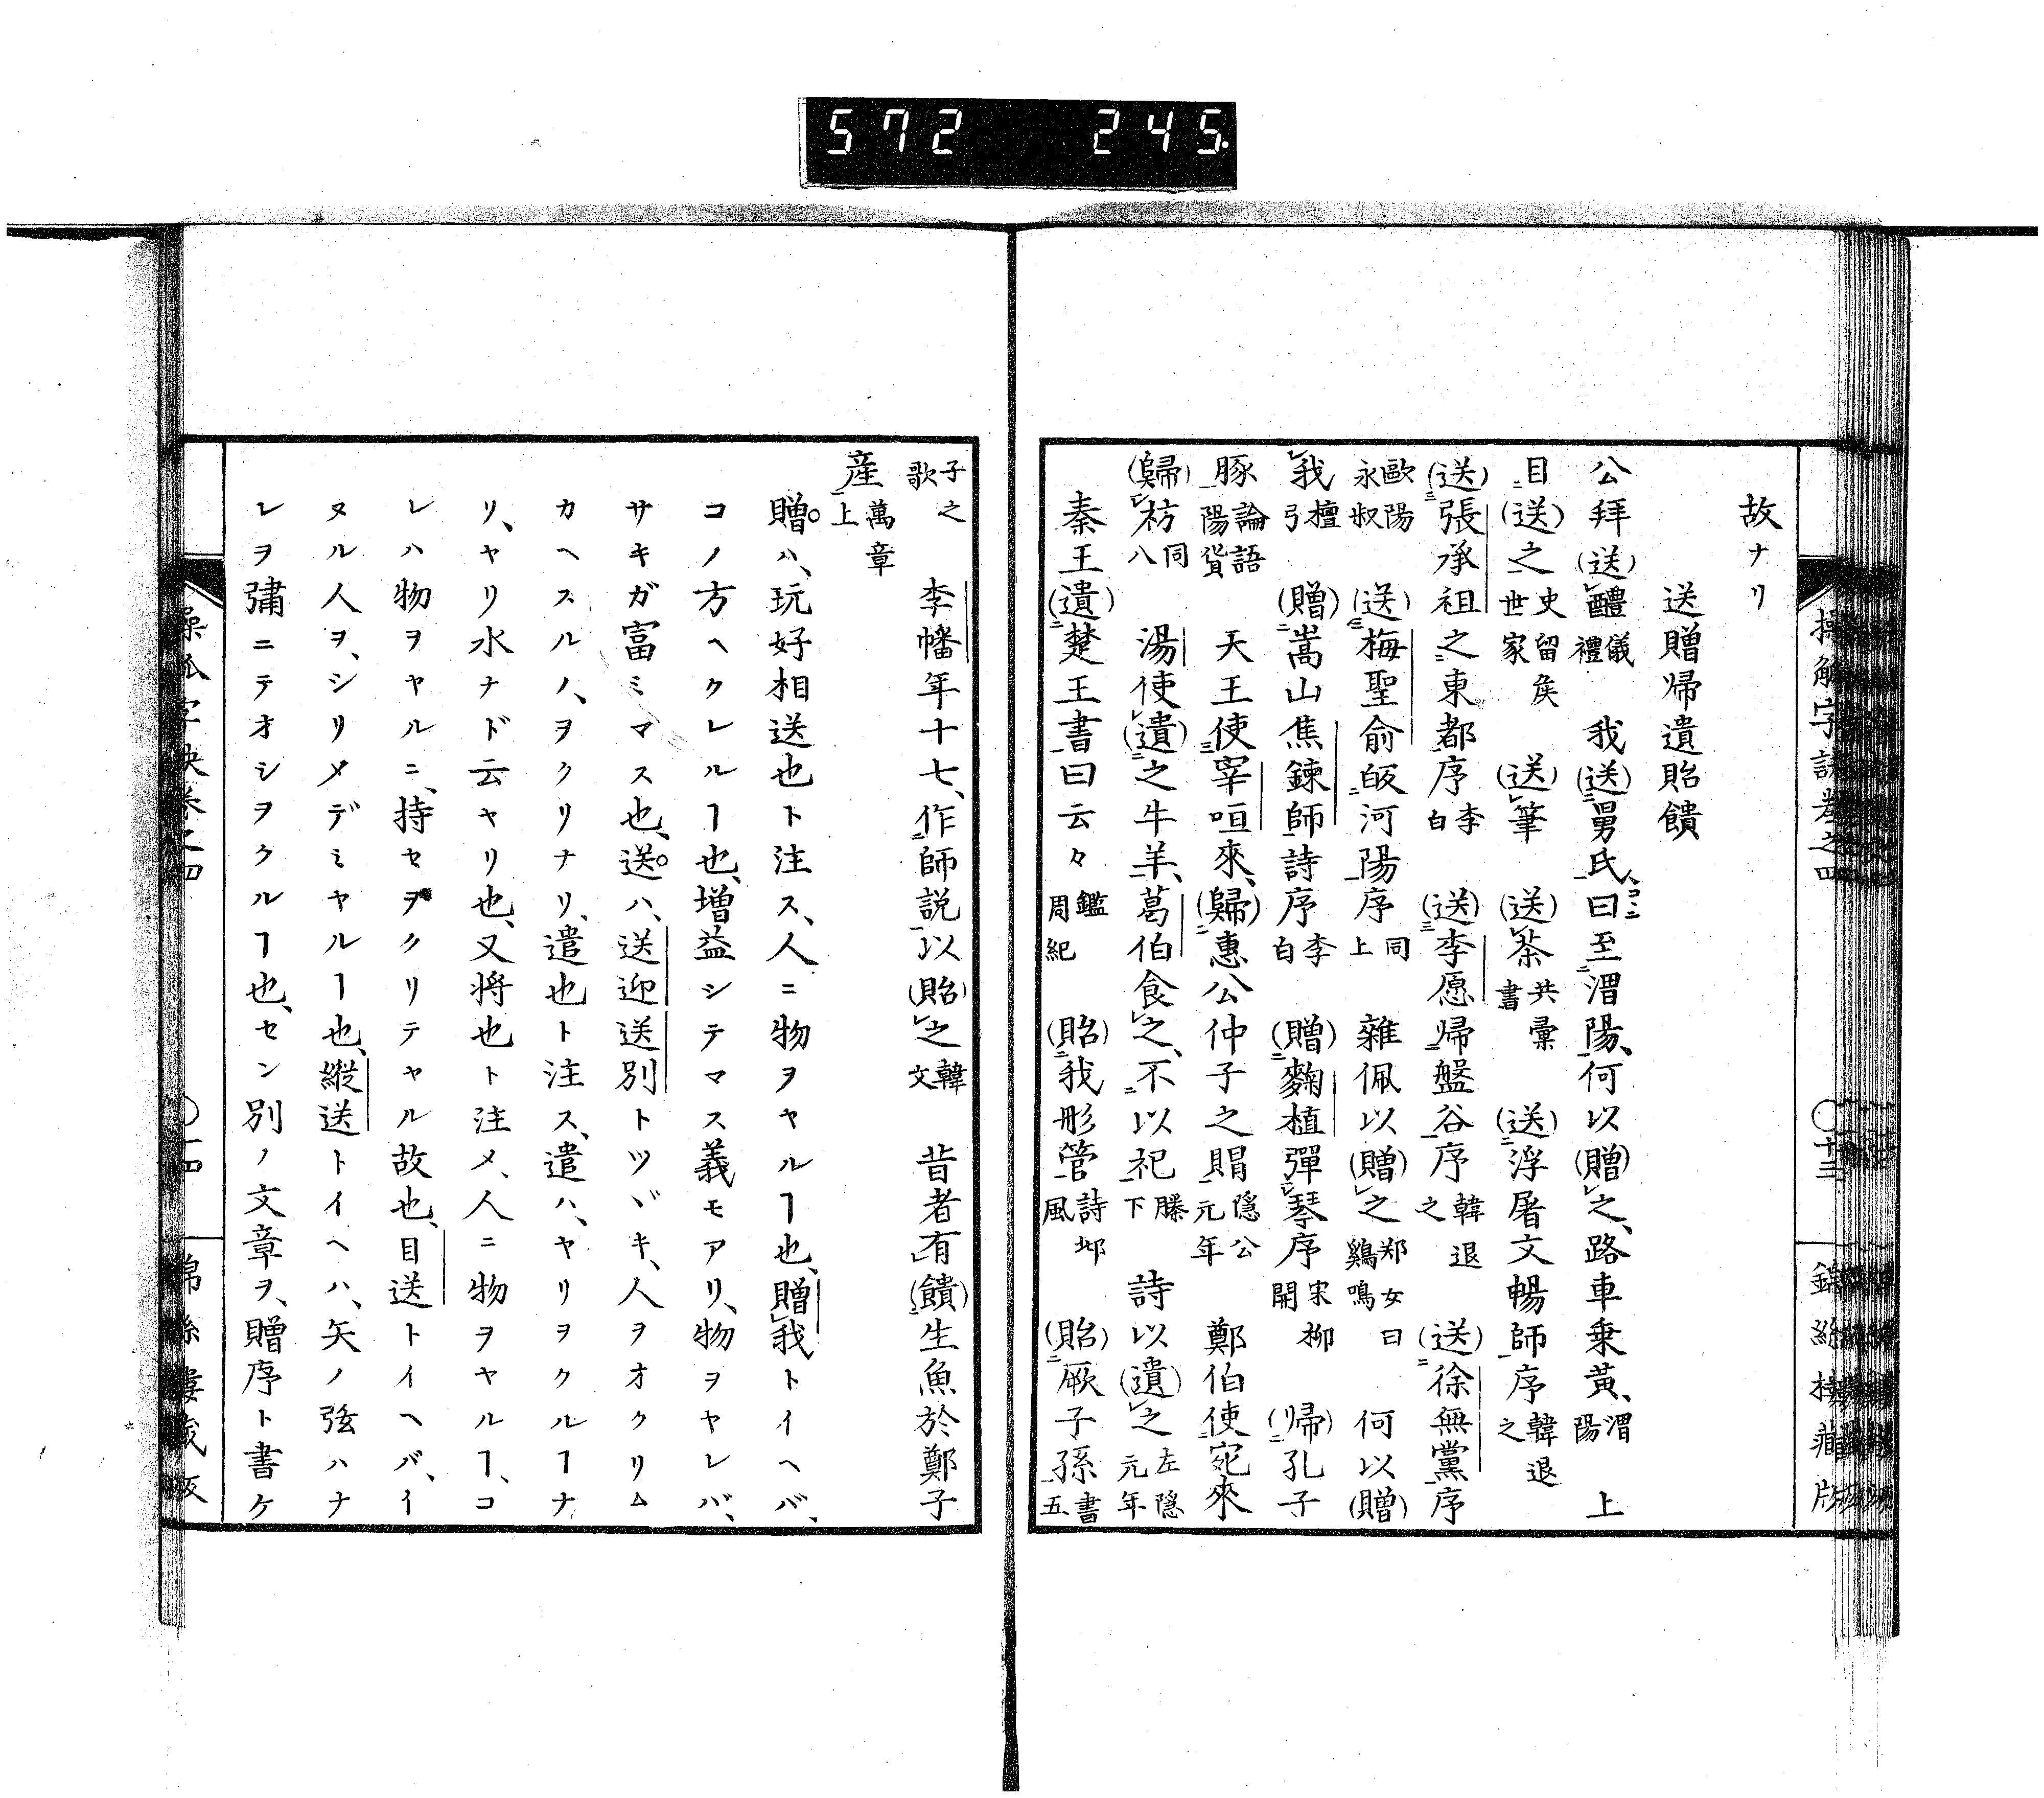 572 245.
操觚字訣巻之四 〇十三 錦絲樓蔵版
故ナリ
送贈帰遺貽饋
公拜(送)醴儀禮 我(送)舅氏、曰至渭陽、何以(贈)之、路車乗黄、渭陽 上
目(送)之史留矦世家 (送)筆 (送)茶共彙書 (送)浮屠文暢師序韓退之
(送)張承祖之東都序李白 (送)李愿帰盤谷序韓退之 (送)徐無黨序
歐陽永叔 (送)梅聖俞皈河陽序同上 雜佩以(贈)之郑女曰鷄鳴 何以(贈)
我檀弓 (贈)嵩山焦鍊師詩序李白 (贈)麴植彈琴序宋柳開 (帰)孔子
豚論語陽貨 天王使宰咺來、(歸)惠公仲子之賵隠公元年 鄭伯使宛來
(歸)祊同八 湯使(遺)之牛羊、葛伯食之、不以祀滕下 詩以(遺)之左隠元年
秦王(遺)楚王書曰云々鑑周紀 (貽)我彤管詩邶風 (貽)厥子孫書五
子之歌 李幡年十七、作師説以(貽)之韓文 昔者有(饋)生魚於鄭子
産萬章上
贈ハ、玩好相送也ト注ス、人ニ物ヲヤルヿ也、贈我トイヘバ、
コノ方ヘクレルヿ也、増益シテマス義モアリ、物ヲヤレバ、
サキガ富ミマス也、送ハ、送迎送別トツヾキ、人ヲオクリム
カヘスルノ、ヲクリナリ、遣也ト注ス、遣ハ、ヤリヲクルヿナ
リ、ヤリ水ナド云ヤリ也、又将也ト注メ、人ニ物ヲヤルヿ、コ
レハ物ヲヤルニ、持セヲクリテヤル故也、目送トイヘバ、イ
ヌル人ヲ、シリメデミヤルヿ也、縦送トイヘハ、矢ノ弦ハナ
レヲ彇ニテオシヲクルヿ也、セン別ノ文章ヲ、贈序ト書ケ
操觚字訣巻之四 〇十四 錦絲樓蔵版